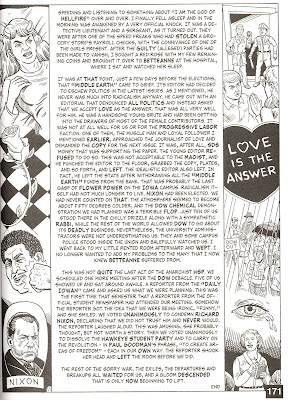 SPEEDING AND LISTENING TO SOMETHING ABOUT "I AM THE GOD OF
HELLFIRE" OVER AND OVER. I FINALLY FELL ASLEEP AND IN THE
MORNING WAS AWAKENED BY A VERY OFFICIAL KNOCK. IT WAS A DE-
TECTIVE LIEUTENANT AND A SERGEANT, AS IT TURNED OUT. THEY
WERE AFTER ONE OF THE SPEED FREAKS WHO HAD STOLEN A GRO-
CERY STORE'S PAYROLL CHECKS, WITH THE CONNIVANCE OF ONE OF
THE GIRLS PRESENT. AFTER THE GUILTY (ALLEGED) PARTIES HAD
BEEN MADE TO VANISH, I BOUGHT A RED ROSE WITH MY FEW REMAIN-
ING COINS AND BROUGHT IT OVER TO BETTEANNE AT THE HOSPITAL,
WHERE I SAT AND WATCHED HER SLEEP.
IT WAS AT THAT POINT, JUST A FEW DAYS BEFORE THE ELECTIONS,
THAT "MIDDLE EARTH" CAME TO GRIEF. ITS EDITOR HAD DECIDED
TO ESCHEW POLITICS IN THE LATEST ISSUE. AS I MENTIONED, HE
NEVER WAS MUCH INTO RADICALISM ANYHOW. HE CAME OUT WITH AN
EDITORIAL THAT DENOUNCED ALL POLITICS AND INSTEAD ASKED
THAT WE ACCEPT LOVE AS THE ANSWER. THAT WAS ALL VERY WELL
FOR HIM. HE WAS A HANDSOME YOUNG BRUTE AND HAD BEEN GETTING
INTO THE DRAWERS OF MOST OF THE FEMALE CONTRIBUTORS. IT
WAS NOT AT ALL WELL FOR US OR FOR THE PROGRESSIVE LABOR
FACTION. ONE OF THEM, THE MUSCLE MAN AND LOYAL FOLLOWER
OF THE HARDLINER, APPROACHED THE YOUNG MAN OF LOVE AND
DEMANDED THE COPY FOR THE NEXT ISSUE. IT WAS, AFTER ALL, SDS
MONEY THAT WAS SUPPORTING THE PAPER. THE YOUNG EDITOR RE-
FUSED TO DO SO. THIS WAS NOT ACCEPTABLE TO THE MAOIST, AND
HE PUNCHED THE EDITOR TO THE FLOOR, GRABBED THE COPY, PLATES,
AND SO FORTH, AND LEFT. THE IDEALISTIC EDITOR ALSO LEFT. IN
FACT, HE LEFT THE STATE AFTER WITHDRAWING ALL THE "MIDDLE
EARTH" FUNDS FROM THE BANK. THAT WAS MORE OR LESS THE LAST
GASP OF FLOWER POWER ON THE IOWA CAMPUS. RADICALISM IT-
SELF HAD NOT MUCH LONGER TO LIVE. NIXON HAD BEEN ELECTED. WE
HAD NEVER COUNTED ON THAT. THE ATMOSPHERE SEEMED TO BECOME
ABOUT FIFTY DEGREES COLDER, AND THE DOW CHEMICAL DEMON-
STRATION WE HAD PLANNED WAS A TERRIBLE FLOP. JUST TEN OF US
STOOD THERE IN THE CHILLY DRIZZLE ALONG WITH A SYMPATHETIC
RABBI, WHILE THE REST OF THE WORLD ALLOWED DOW TO GO ABOUT
ITS DEADLY BUSINESS. NEVERTHELESS, THE UNIVERSITY ADMINIS-
TRATORS WERE NOT UNDERESTIMATING US. THEY AND SOME CAMPUS
POLICE STOOD INSIDE THE UNION AND BALEFULLY WATCHED US. I
WENT BACK TO MY LITTLE RENTED ROOM AFTERWARD AND WEPT. I
NO LONGER WANTED TO ADD MY PROBLEMS TO THE MANY THAT I NOW
KNEW BETTEANNE SUFFERED FROM.
THIS WAS NOT QUITE THE LAST ACT OF THE ANARCHIST HSP. WE
SCHEDULED ONE MORE MEETING AFTER THE DOW DEBACLE. FIVE OF US
SHOWED UP AND SAT AROUND AWHILE. A REPORTER FROM THE "DAILY
IOWAN" CAME AND ASKED US WHAT WE WERE PLANNING. THIS WAS
THE FIRST TIME THAT SEMESTER THAT A REPORTER FROM THE OF-
FICIAL STUDENT NEWSPAPER HAD ATTENDED OUR MEETING. SOMEHOW
THE REPORTER GOT THE IDEA THAT WE WERE BEING FORMAL, "FUNNY,"
AND SHE SMILED. WE VOTED UNANIMOUSLY TO CONDEMN RICHARD
NIXON, DECLARING THAT WE DID NOT TRUST HIM AND NEVER WOULD.
THE REPORTER LAUGHED ALOUD. THIS WAS AMUSING, SHE PROBABLY
THOUGHT, BUT NOT WORTH A STORY. THEN WE VOTED UNANIMOUSLY
TO DISSOLVE THE HAWKEYE STUDENT PARTY AND TO CARRY ON THE
REVOLUTION – IN PAUL GOODMAN'S PHRASE, "TO CREATE AR-
EAS OF FREEDOM" – EACH IN OUR OWN WAY. THE REPORTER SHOOK
HER HEAD AND LEFT THE ROOM BEFORE WE DID.
THE REST OF THE SORRY WAR, THE EXILES, THE DEPARTURES AND
BREAKUPS ALL WAITED FOR US, AND A GLOOM DESCENDED
THAT IS ONLY NOW BEGINNING TO LIFT.
END
LOVE
IS THE
ANSWER
NIXON
171